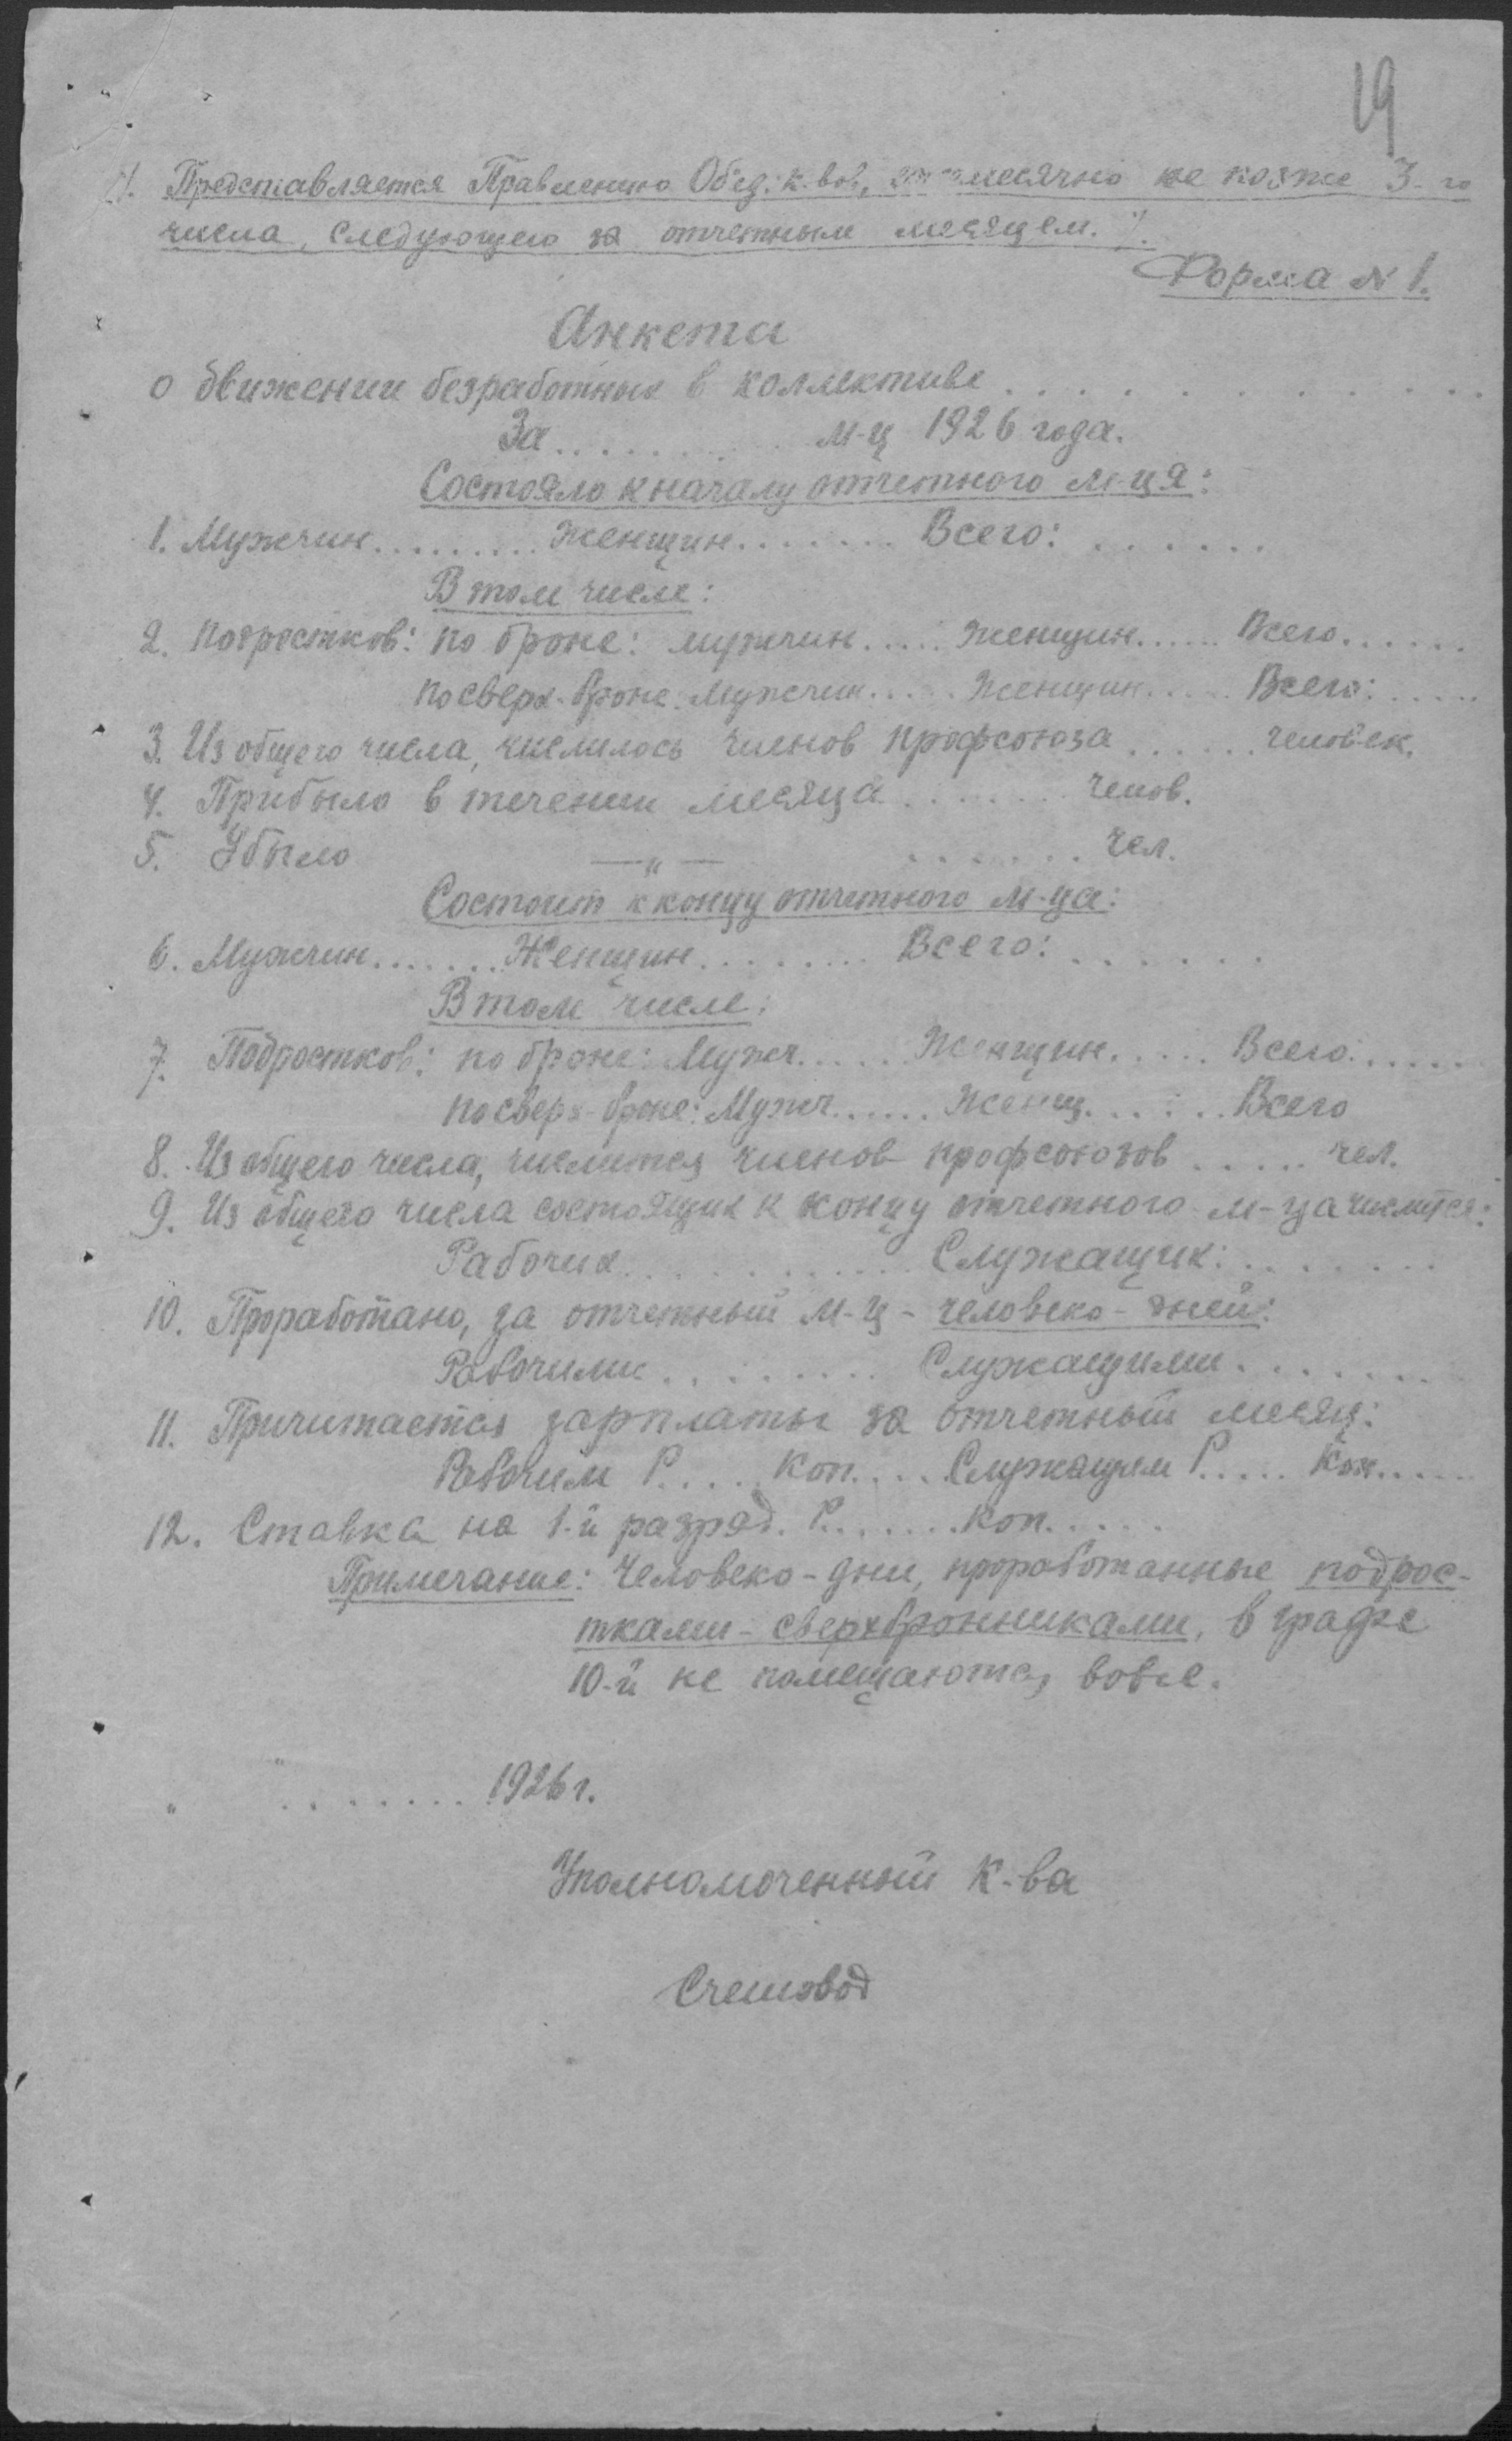 19
%. Представляется Правлению Об'ед. к-вов, ежемесячно не позже 3-го
числа, следующего за отчетным месяцем. %.
Форма № 1.
Анкета
о движении безработных в коллективе . . . . . . . . . .
За . . . . . . . . м-ц 1926 года.
Состояло к началу отчетного м-ця:
1. Мужчин . . . . . . . . . Женщин . . . . . . . Всего: . . . . . .
В том числе:
2. Подростков: по броне: мужчин . . . . . Женщин . . . . . Всего . . . . . .
по сверх-броне: Мужчин . . . . . Женщин . . . . . Всего: . . . . .
3. Из общего числа, числилось членов профсоюза . . . . . . человек.
4. Прибыло в течении месяца . . . . . . . челов.
5. Убыло —"— . . . . . . . чел.
Состоит к концу отчетного м-ца:
6. Мужчин . . . . . . . Женщин . . . . . . . . Всего: . . . . . .
В том числе:
7. Подростков: по броне: Мужч . . . . . Женщин . . . . . Всего: . . . . .
по сверх-броне: Мужч . . . . . . Женщ . . . . . . Всего
8. Из общего числа, числится членов профсоюзов . . . . . чел.
9. Из общего числа состоящих к концу отчетного м-ца числится:
Рабочих . . . . . . . . . . . Служащих: . . . . . . .
10. Проработано, за отчетный м-ц - человеко-дней:
Рабочими . . . . . . . . Служащими . . . . . . .
11. Причитается зарплаты за отчетный месяц:
Рабочим Р. . . . . Коп. . . . . Служащим Р. . . . . Коп. . . . .
12. Ставка на 1-й разряд. Р. . . . . . . Коп. . . . .
Примечание: Человеко-дни, проработанные подрос-
тками-сверхбронниками, в графе
10-й не помещаются вовсе.
" " . . . . . . . 1926 г.
Уполномоченный К-ва
Счетовод